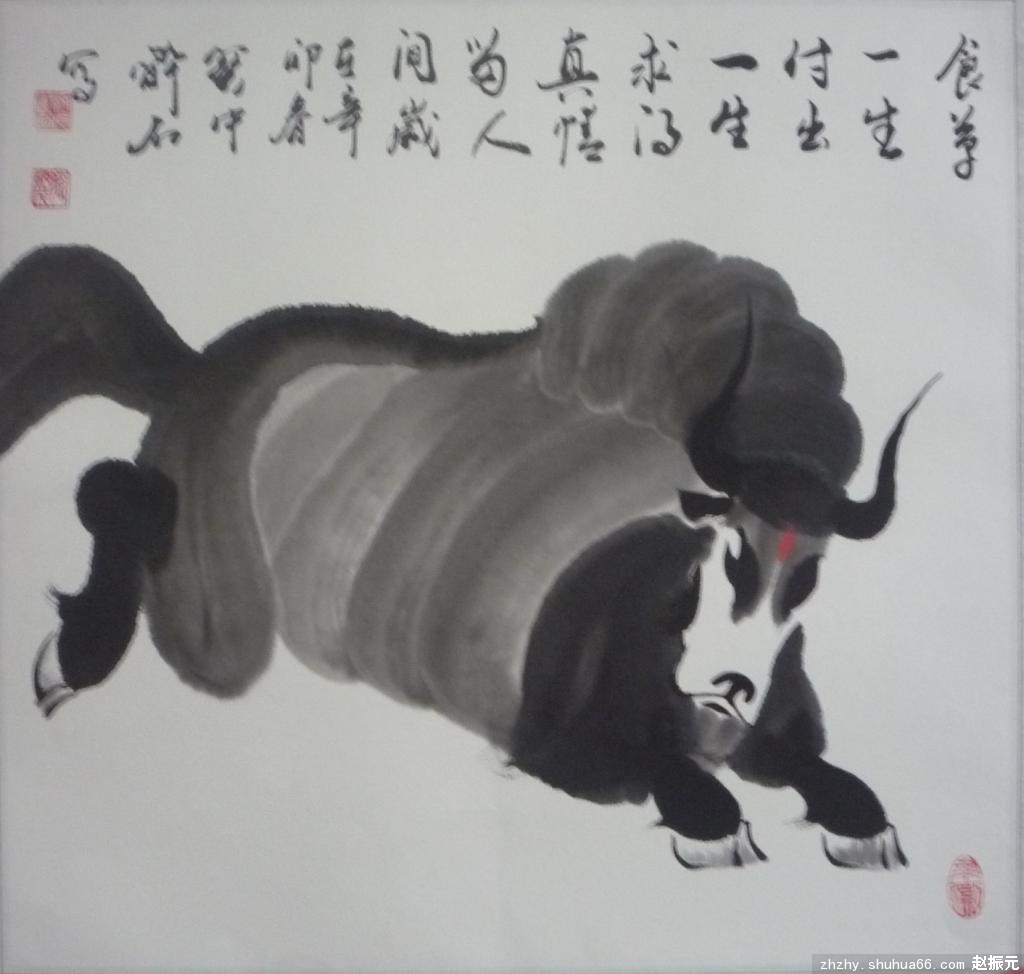 食草
一生
付出
一生
求得
真情
留人
间歲
在辛
卯春
中
醉石
寫
zhzhy.shuhua66.com 赵振元